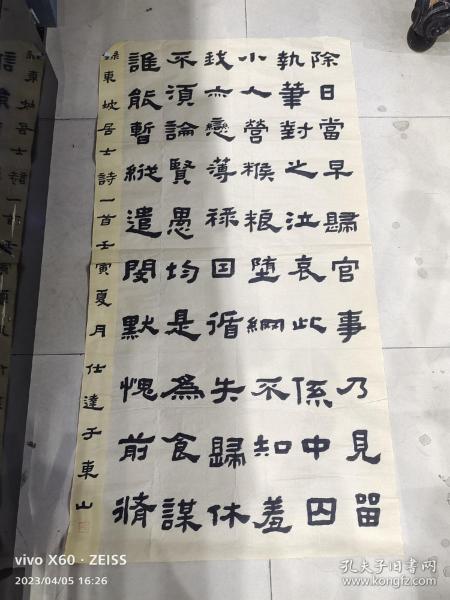 除日當早歸官事乃見留
執筆對之泣哀此係中囚
小人營糇粮堕網不知羞
我亦戀薄禄因循失歸休
不須論賢愚均是爲食謀
誰能暫縱遣閔默愧前脩
東坡居士詩一首壬寅夏月仕達于東山
vivo X60 · ZEISS
2023/04/05 16:26
孔夫子旧书网
www.kongfz.com